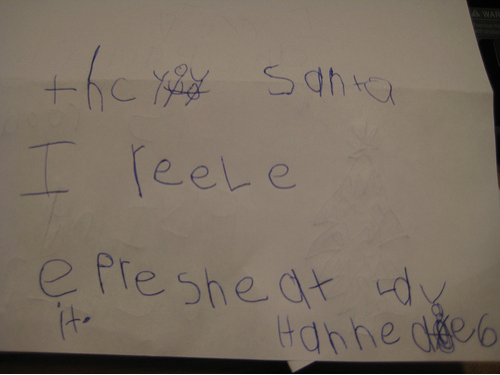 thc you Santa
I reele
epresheat
it.
Hanne